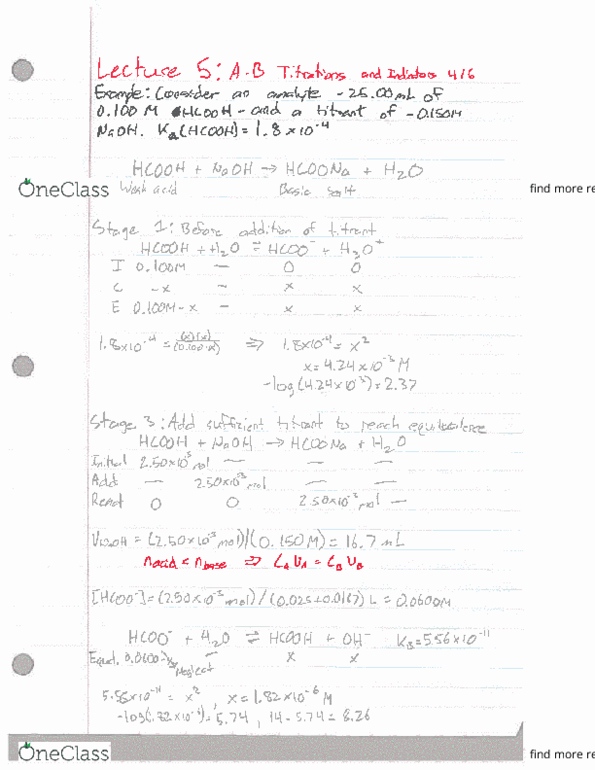 Lecture 5: A-B Titrations and Indicators 4/6
Example: Consider an analyte - 25.00 mL of
0.100 M HCOOH - and a titrant of - 0.150M
NaOH. Ka(HCOOH) = 1.8 × 10⁻⁴
HCOOH + NaOH → HCOONa + H₂O
OneClass Weak acid Basic salt find more re
Stage 1: Before addition of titrant
HCOOH + H₂O ⇌ HCOO⁻ + H₃O⁺
I 0.100M — 0 0
C -x — x x
E 0.100M-x — x x
1.8×10⁻⁴ = (x)(x)/(0.100-x) ⇒ 1.8×10⁻⁴ = x²
x = 4.24×10⁻³ M
-log(4.24×10⁻³) = 2.37
Stage 3: Add sufficient titrant to reach equivalence
HCOOH + NaOH → HCOONa + H₂O
Initial 2.50×10⁻³ mol — — —
Add — 2.50×10⁻³ mol — —
React 0 0 2.50×10⁻³ mol —
VNaOH = (2.50×10⁻³ mol)/(0.150M) = 16.7 mL
nacid = nbase ⇒ CAVA = CBVB
[HCOO⁻] = (2.50×10⁻³ mol) / (0.025+0.0167) L = 0.0600M
HCOO⁻ + H₂O ⇌ HCOOH + OH⁻ KB = 5.56×10⁻¹¹
Equil. 0.0600-x — x x
Neglect
5.56×10⁻¹¹ = x², x = 1.82×10⁻⁶ M
-log(1.82×10⁻⁶) = 5.74, 14 - 5.74 = 8.26
OneClass find more re